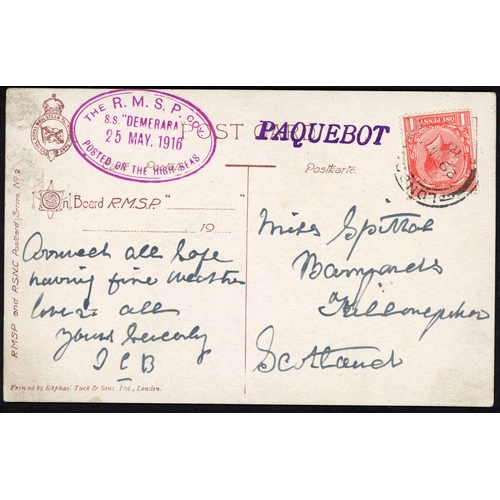 THE R.M.S.P. COY
S.S. "DEMERARA"
25 MAY. 1916
POSTED ON THE HIGH SEAS
POST CARD
PAQUEBOT
ONE PENNY
LONDON
Postkarte.
On Board R.M.S.P.
19
Arrived all safe
having fine weather
love to all
yours sincerely
Miss Spittal
Scotland
RMSP and P.S.N.C. Postcard, Series No 2
Printed by Raphael Tuck & Sons, Ltd., London.